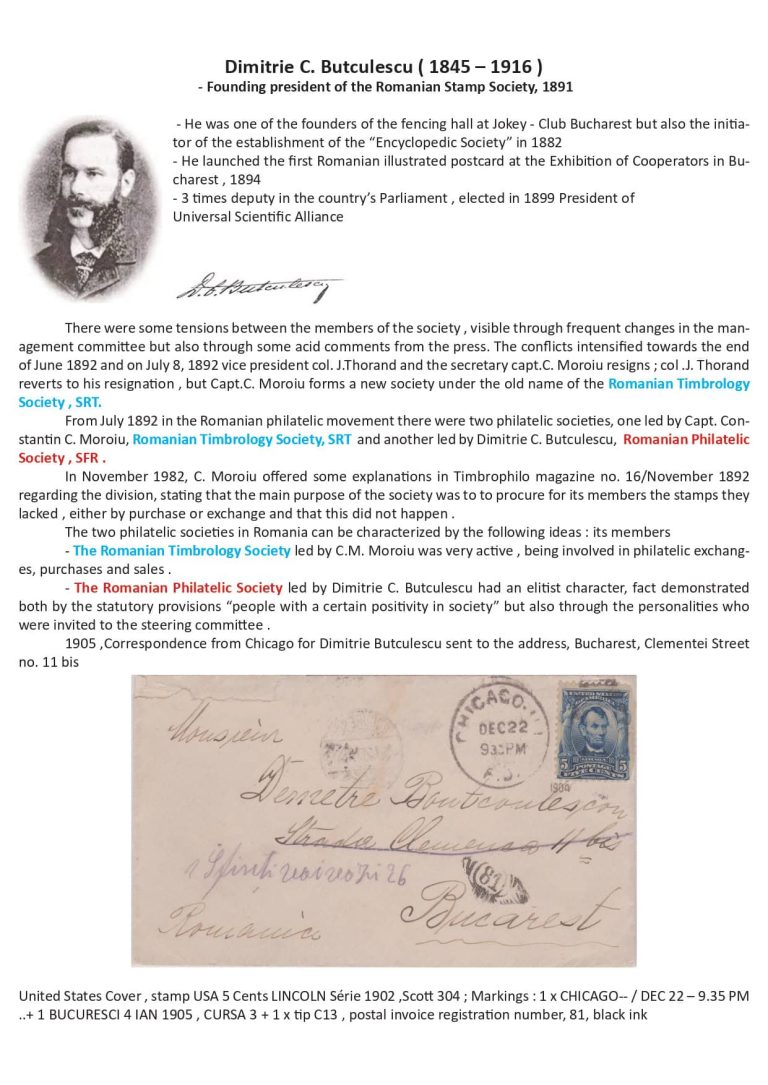 Dimitrie C. Butculescu ( 1845 – 1916 )
- Founding president of the Romanian Stamp Society, 1891
- He was one of the founders of the fencing hall at Jokey - Club Bucharest but also the initia-
tor of the establishment of the “Encyclopedic Society” in 1882
- He launched the first Romanian illustrated postcard at the Exhibition of Cooperators in Bu-
charest , 1894
- 3 times deputy in the country’s Parliament , elected in 1899 President of
Universal Scientific Alliance
D.C.Butculescu
There were some tensions between the members of the society , visible through frequent changes in the man-
agement committee but also through some acid comments from the press. The conflicts intensified towards the end
of June 1892 and on July 8, 1892 vice president col. J.Thorand and the secretary capt.C. Moroiu resigns ; col .J. Thorand
reverts to his resignation , but Capt.C. Moroiu forms a new society under the old name of the Romanian Timbrology
Society , SRT.
From July 1892 in the Romanian philatelic movement there were two philatelic societies, one led by Capt. Con-
stantin C. Moroiu, Romanian Timbrology Society, SRT and another led by Dimitrie C. Butculescu, Romanian Philatelic
Society , SFR .
In November 1982, C. Moroiu offered some explanations in Timbrophilo magazine no. 16/November 1892
regarding the division, stating that the main purpose of the society was to to procure for its members the stamps they
lacked , either by purchase or exchange and that this did not happen .
The two philatelic societies in Romania can be characterized by the following ideas : its members
- The Romanian Timbrology Society led by C.M. Moroiu was very active , being involved in philatelic exchang-
es, purchases and sales .
- The Romanian Philatelic Society led by Dimitrie C. Butculescu had an elitist character, fact demonstrated
both by the statutory provisions “people with a certain positivity in society” but also through the personalities who
were invited to the steering committee .
1905 ,Correspondence from Chicago for Dimitrie Butculescu sent to the address, Bucharest, Clementei Street
no. 11 bis
CHICAGO
DEC 22
PM
1904
UNITED STATES
OF AMERICA
5 5
POSTAGE
FIVE CENTS
Monsieur
Demetre Boutcoulescou
Strada Clemensa 11 bis
26
(81)
Bucarest
Romania
United States Cover , stamp USA 5 Cents LINCOLN Série 1902 ,Scott 304 ; Markings : 1 x CHICAGO-- / DEC 22 – 9.35 PM
..+ 1 BUCURESCI 4 IAN 1905 , CURSA 3 + 1 x tip C13 , postal invoice registration number, 81, black ink